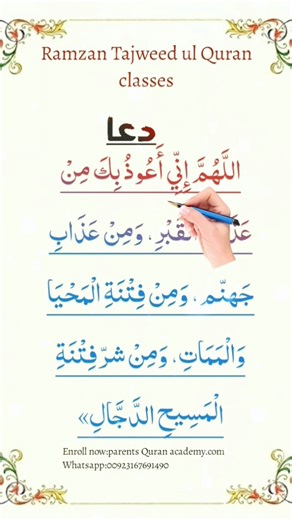 Ramzan Tajweed ul Quran
classes
دعا
اللَّهُمَّ إِنِّي أَعُوذُ بِكَ مِنْ
الْقَبْرِ، وَمِنْ عَذَابِ
جَهَنَّم، وَمِنْ فِتْنَةِ الْمَحْيَا
وَالْمَمَاتِ، وَمِنْ شَرِّ فِتْنَةِ
الْمَسِيحِ الدَّجَّالِ»
Enroll now:parents Quran academy.com
Whatsapp:00923167691490